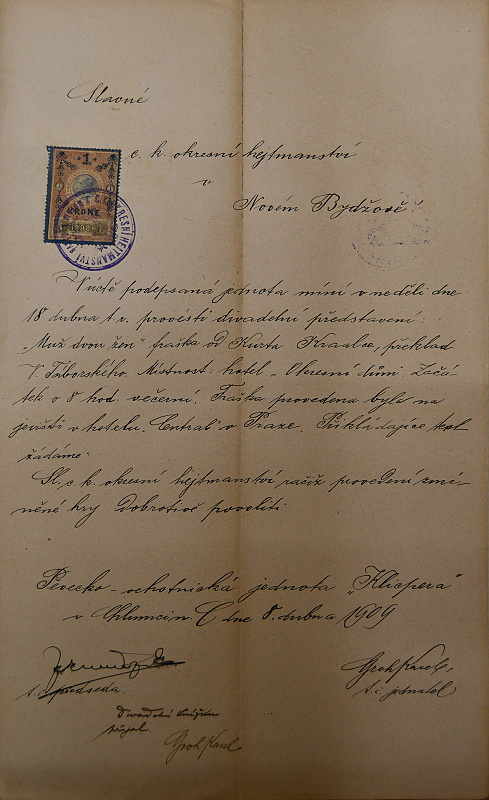 Slavné
c. k. okresní hejtmanství
v
Novém Bydžově!
1
KRONE
V úctě podepsaná jednota míní v neděli dne
18 dubna t. v. provésti divadelní představení:
„Muž dvou žen" fraška od Kurta Kraatze, překlad
V. Táborského. Místnost: hotel „Okresní dům. Začá-
tek o 8 hod. večerní. Fraška provedena byla na
jevišti v hotelu „Central" v Praze. Přikládajíce
žádáme:
Sl. c. k. okresní hejtmanství račiž provedení zmí-
něné hry dobrotivě povoliti
Pěvecko-ochotnická jednota „Klicpera"
v Chlumci n. C dne 8. dubna 1909
t. č. předseda.
Groh Karel,
t. č. jednatel
Divadelní knížku
přijal.
Groh Karel